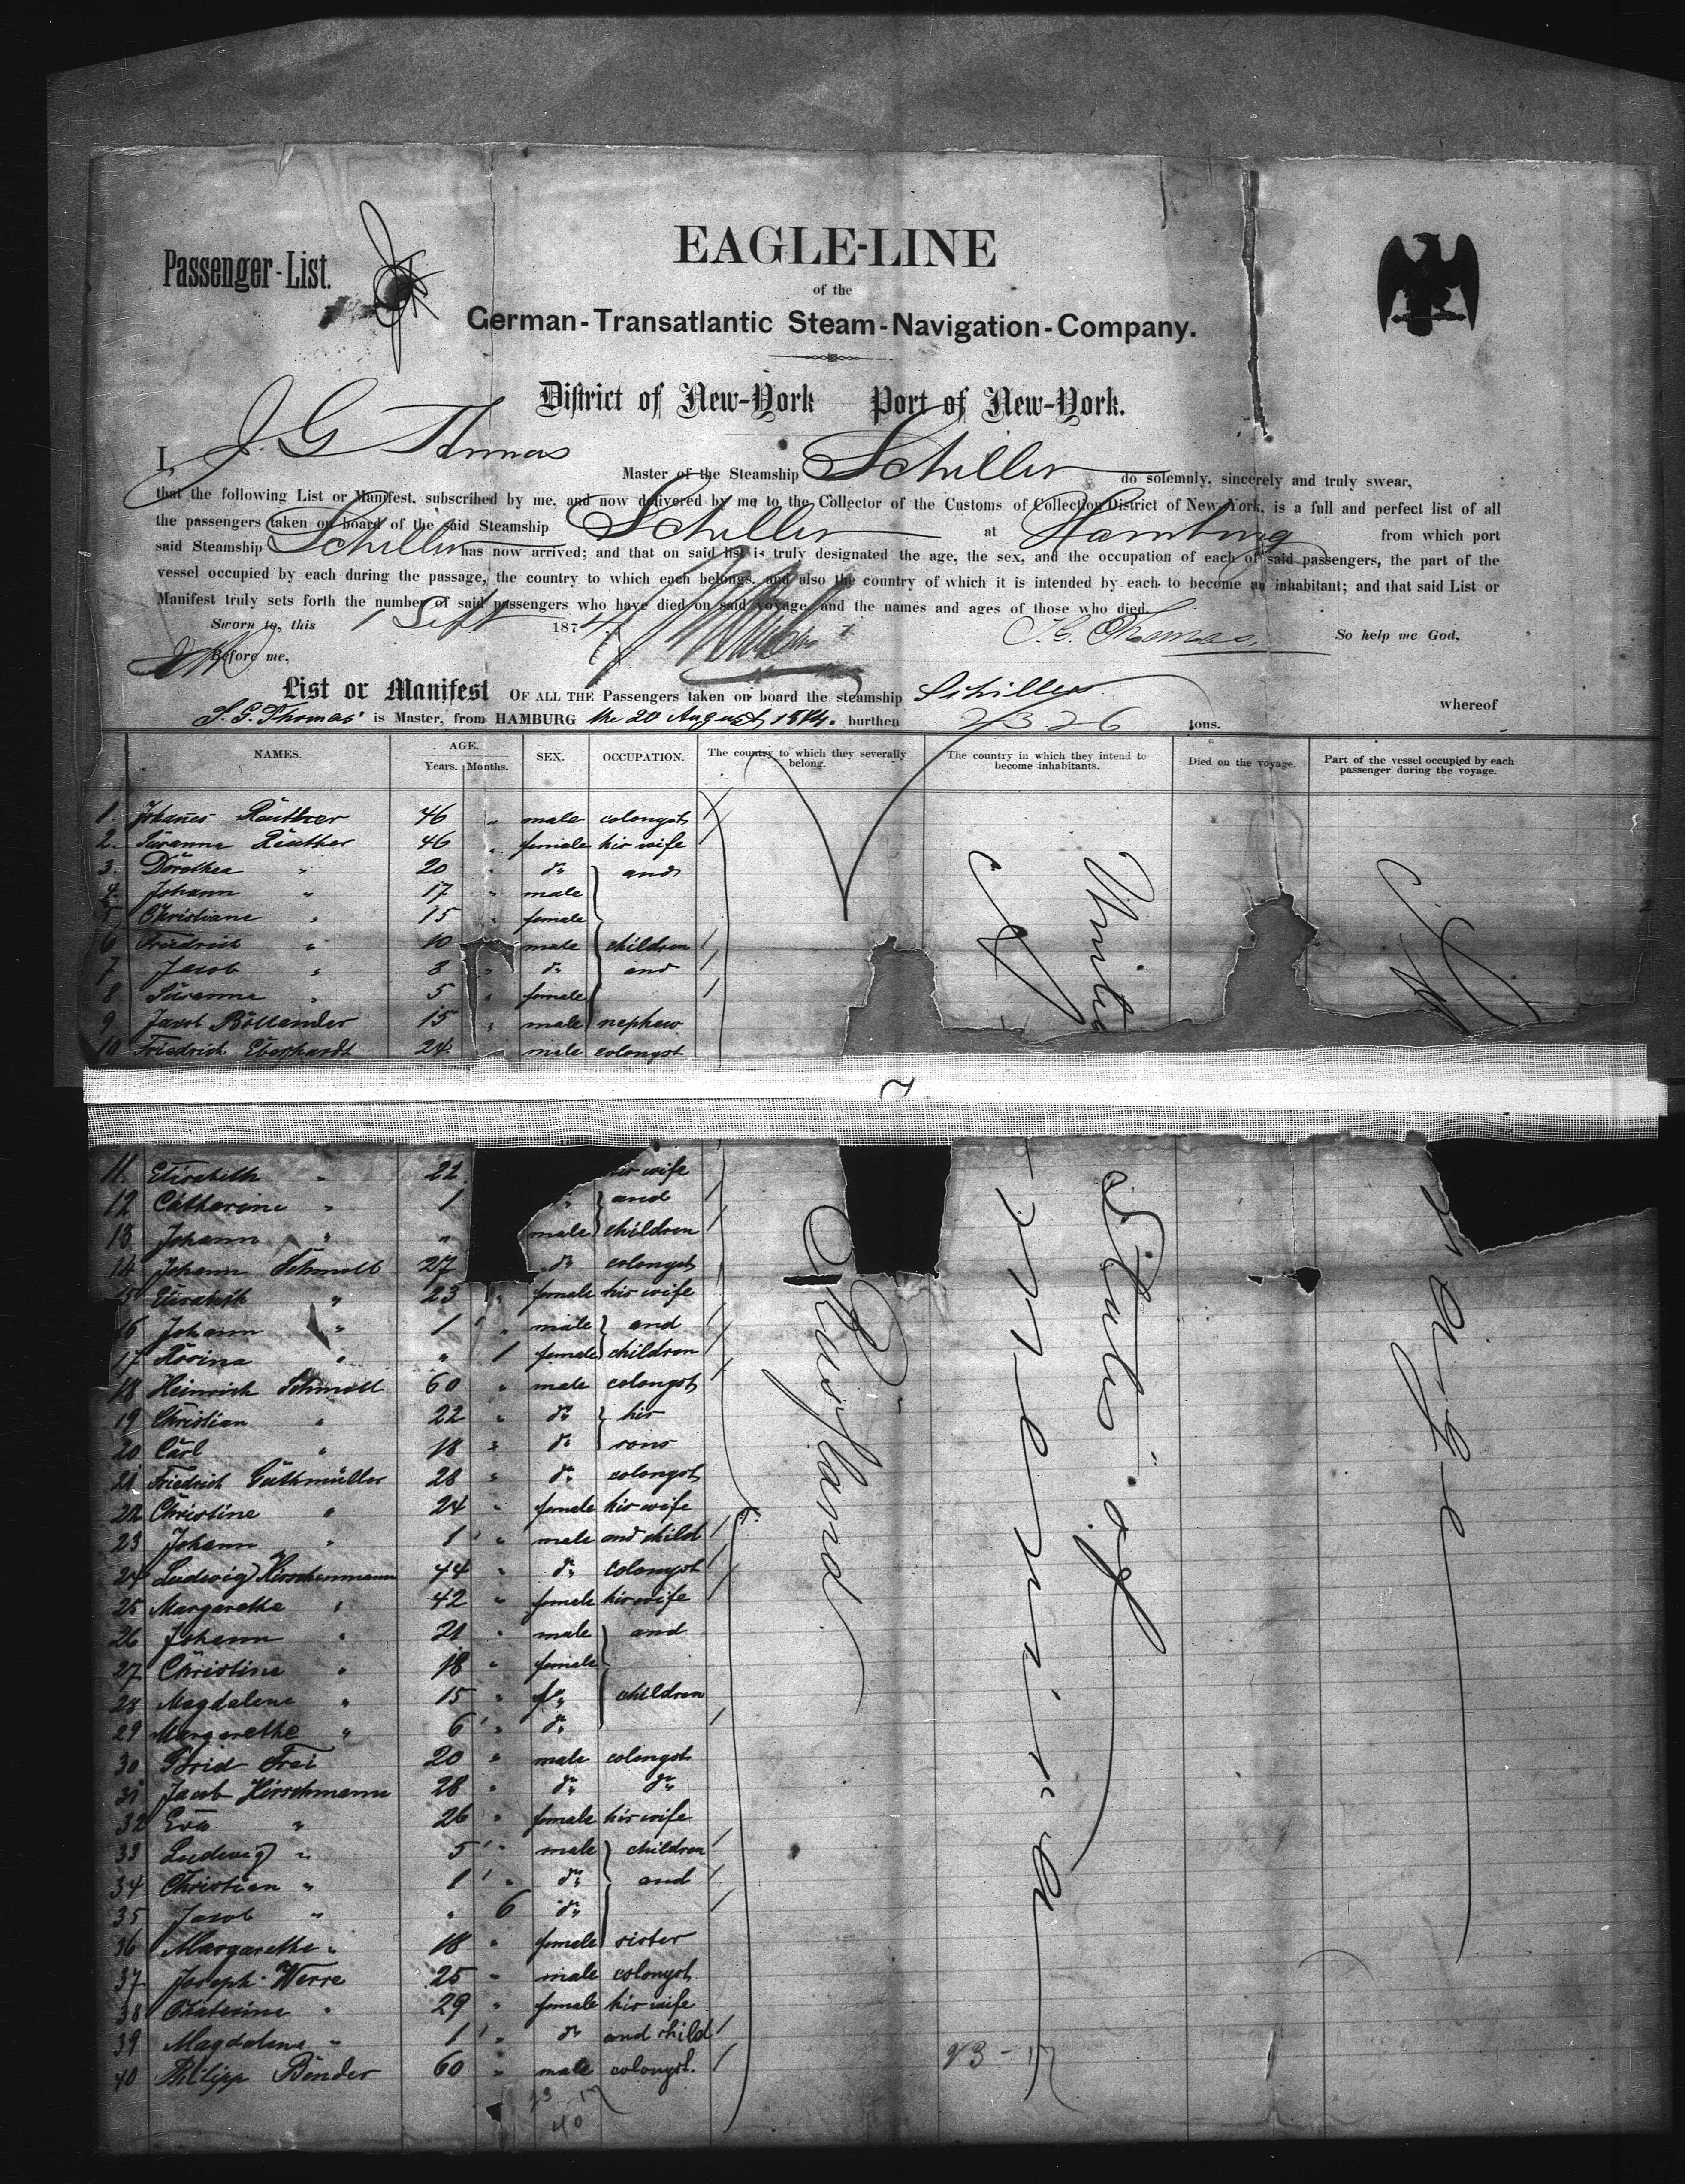 Passenger-List.
EAGLE-LINE
of the
German-Transatlantic Steam-Navigation-Company.
District of New-York Port of New-York.
I, J. G Thomas Master of the Steamship Schiller do solemnly, sincerely and truly swear,
that the following List or Manifest, subscribed by me, and now delivered by me to the Collector of the Customs of Collection District of New-York, is a full and perfect list of all
the passengers taken on board of the said Steamship Schiller at Hamburg from which port
said Steamship Schiller has now arrived; and that on said list is truly designated the age, the sex, and the occupation of each of said passengers, the part of the
vessel occupied by each during the passage, the country to which each belongs, and also the country of which it is intended by each to become an inhabitant; and that said List or
Manifest truly sets forth the number of said passengers who have died on said voyage, and the names and ages of those who died.
Sworn to, this 1 Sept 1874 J. G. Thomas. So help me God,
Before me,
List or Manifest OF ALL THE Passengers taken on board the steamship Schiller whereof
J. G. Thomas is Master, from HAMBURG the 20 August 1874. burthen 2326 tons.
NAMES. AGE. Years. Months. SEX. OCCUPATION. The country to which they severally belong. The country in which they intend to become inhabitants. Died on the voyage. Part of the vessel occupied by each passenger during the voyage.
1. Johanes Räuther 46 " male colongst
2. Susanna Räuther 46 " female his wife
3. Dorothea " 20 " do and
4. Johann " 17 " male
5 Christiane " 15 female
6 Friedrich " 10 male children
7 Jacob " 8 " do and
8 Susanna " 5 " female
9 Jacob Bollender 15 " male nephew
10 Friedrich Eberhardt 24 male colongst
11. Elisabeth " 22 his wife
12 Catharine " 1 and
13 Johann " " male children
14 Johann Schmoll 27 do colongst
15 Elisabeth " 23 " female his wife
16 Johann " 1 " male and
17 Rosina " " 1 female children
18 Heinrich Schmoll 60 " male colongst
19 Christian " 22 " do his
20 Carl " 18 " do sons
21 Friedrich Guthmüller 28 " do colongst
22 Christine " 24 " female his wife
23 Johann " 1 " male and child
24 Ludwig Hirschenmann 44 " do colongst
25 Margarethe " 42 " female his wife
26 Johann " 21 " male and
27 Christine " 18 " female
28 Magdalene " 15 " children
29 Margarethe " 6 " do
30 Frei 20 " male colongst
31 Jacob Hirschmann 28 " do do
32 Eva " 26 " female his wife
33 Ludwig " 5 " male children
34 Christian " 1 " do and
35 Jacob " " 6 do
36 Margarethe " 18 " female sister
37 Joseph Werre 25 " male colongst
38 Chaterine " 29 " female his wife
39 Magdalena " 1 " do and child
40 Philipp Bender 60 " male colongst.
Russland
United States of
America
Steerage
23 - 17
23 17
40